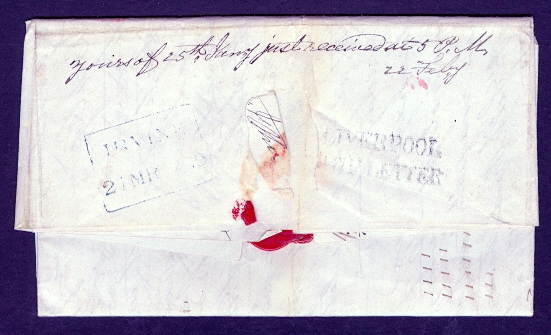 yours of 25th Jany just received at 5 P.M.
22 Feby
IRVINE
21 MR
LIVERPOOL
SHIP LETTER